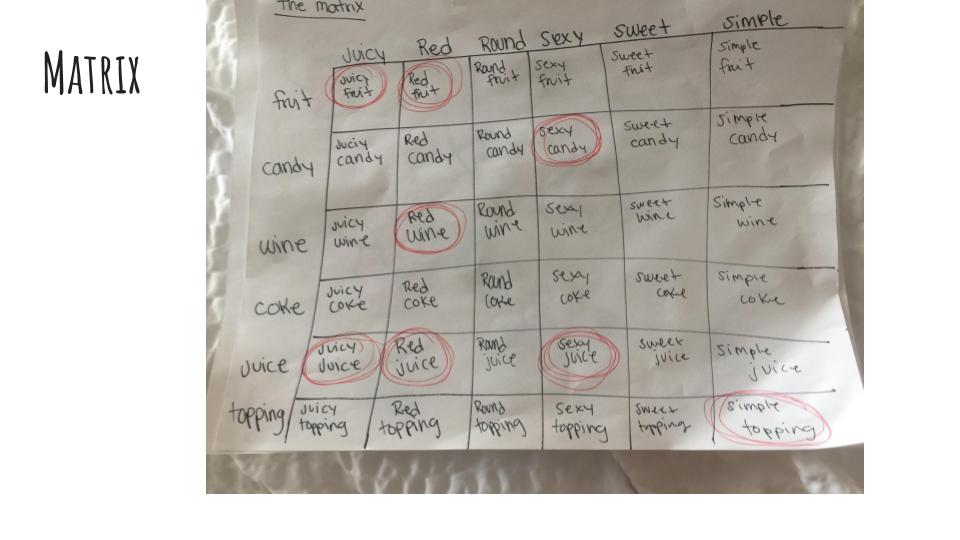 Matrix
The matrix
Juicy Red Round Sexy Sweet Simple
fruit
Juicy fruit
Red fruit
Round fruit
Sexy fruit
Sweet fruit
Simple fruit
candy
Juciy candy
Red candy
Round candy
Sexy candy
Sweet candy
Simple candy
wine
Juicy wine
Red wine
Round wine
Sexy wine
Sweet wine
Simple wine
coke
Juicy coke
Red coke
Round coke
Sexy coke
Sweet coke
Simple coke
juice
Juicy Juice
Red juice
Round juice
Sexy juice
Sweet juice
Simple juice
topping
Juicy topping
Red topping
Round topping
Sexy topping
Sweet topping
Simple topping